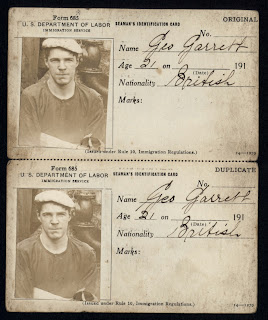 Form 685
ORIGINAL
U. S. DEPARTMENT OF LABOR
IMMIGRATION SERVICE
SEAMAN'S IDENTIFICATION CARD
No.
Name Geo Garrett
Age 21 on 191
(Date)
Nationality British
Marks:
(Issued under Rule 10, Immigration Regulations.)
Form 685
DUPLICATE
U. S. DEPARTMENT OF LABOR
IMMIGRATION SERVICE
SEAMAN'S IDENTIFICATION CARD
No.
Name Geo Garrett
Age 21 on 191
(Date)
Nationality British
Marks:
(Issued under Rule 10, Immigration Regulations.)